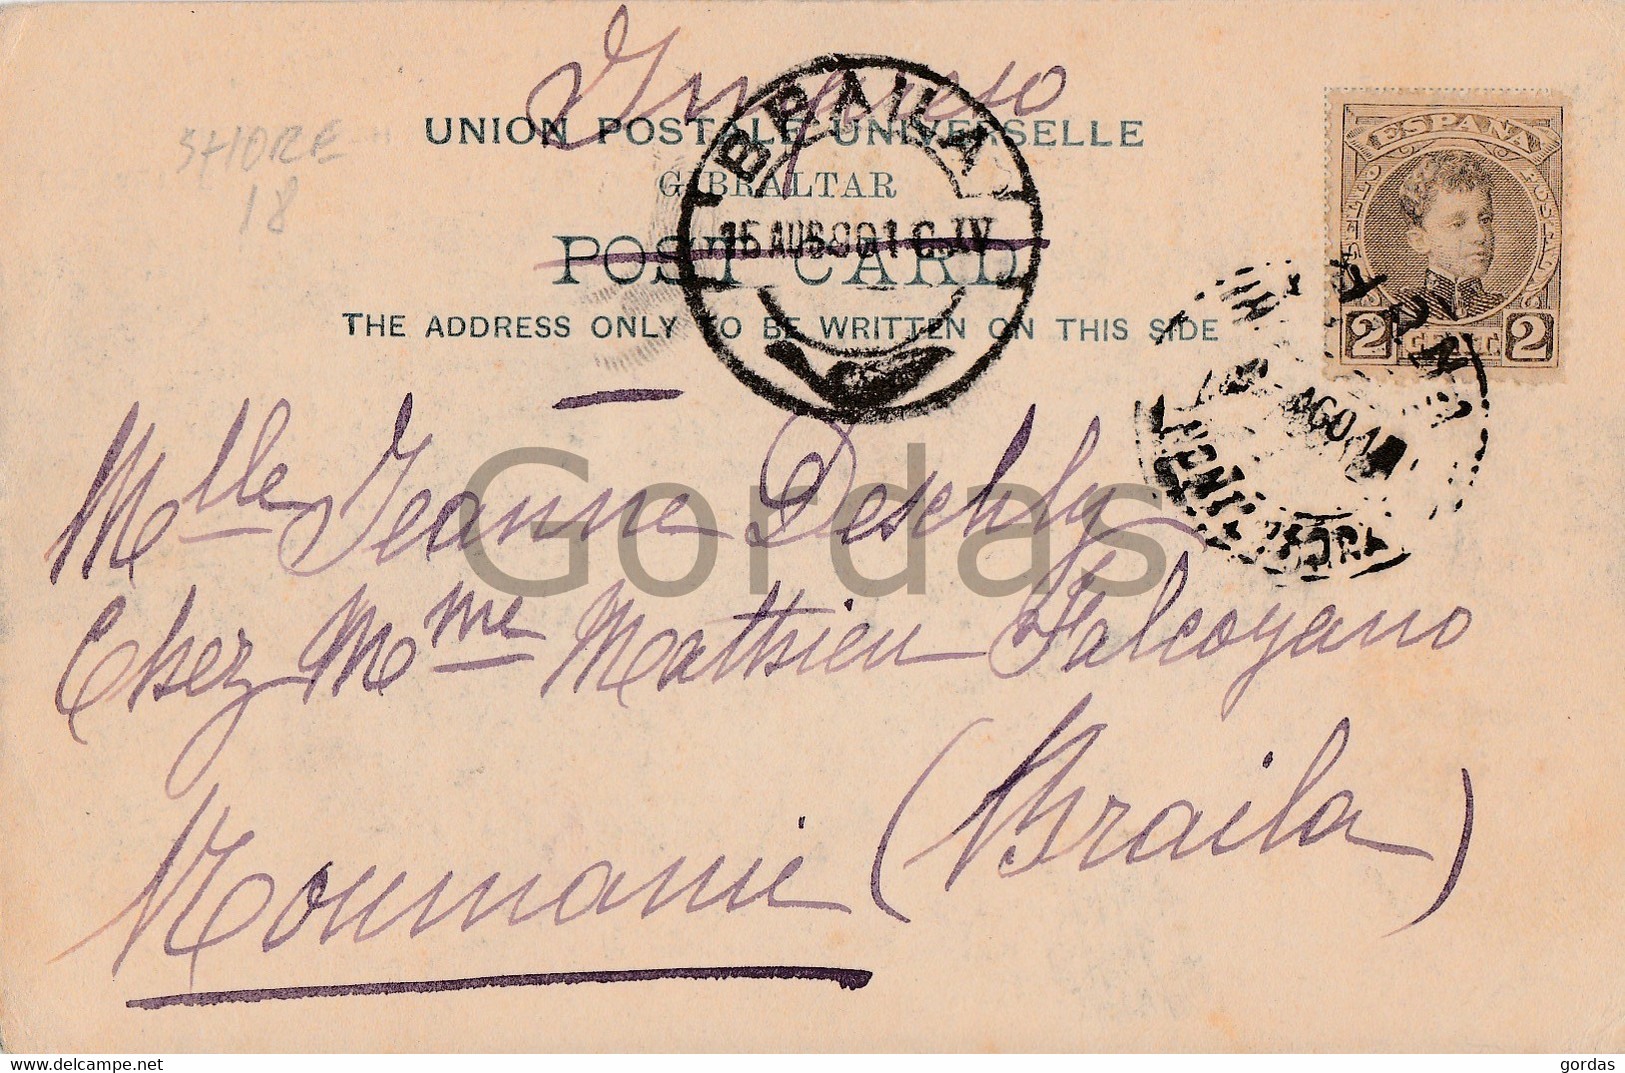 Impreso
UNION POSTALE UNIVERSELLE
GIBRALTAR
POST CARD
THE ADDRESS ONLY TO BE WRITTEN ON THIS SIDE
STORE
18
BRAILA
15 AUG 901
ESPAÑA
2 CENT. 2
AGO
Mlle Jeanne Deschly
Chez Mme Mathieu Falcoyano
Roumanie (Braila)
Gordas
gordas